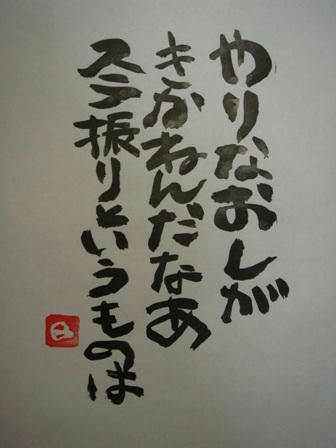 やりなおしが
きかねんだなあ
スラ振りというものは